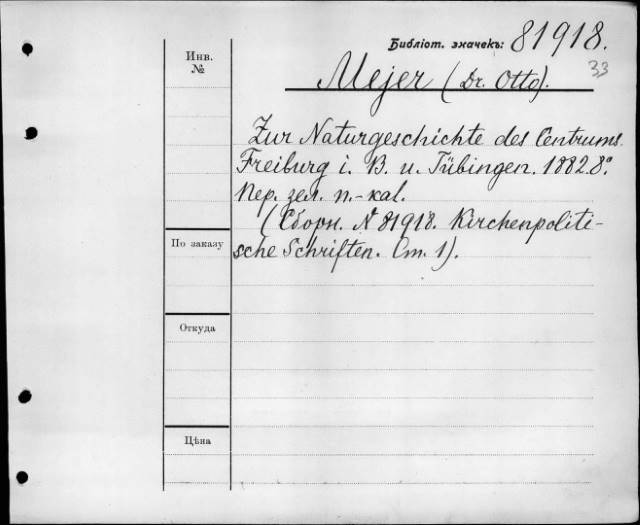 Библіот. значекъ: 81918.
33
Инв.
№
Mejer (Dr. Otto).
Zur Naturgeschichte des Centrums.
Freiburg i. B. u. Tübingen. 1882. 8º
Пер. зел. п.-кал.
(Сборн. № 81918. Kirchenpoliti-
sche Schriften. Ст. 1).
По заказу
Откуда
Цѣна